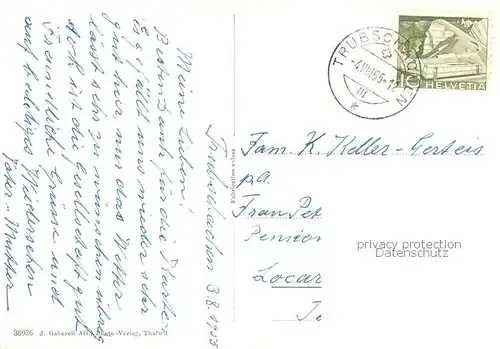 Trübschachen 3.8.1955
Meine Lieben!
Besten Dank für die Karte.
Es gefällt uns wieder sehr
gut hier nur das Wetter
lässt sehr zu wünschen übrig
doch ist die Gesellschaft gut.
Freundliche Grüsse und
auf baldiges Wiedersehen
Vater u. Mutter
38936 J. Gaberell AG., Photo-Verlag, Thalwil
Fabrication suisse
TRUBSCHACHEN
-4.VIII.55-12
III
10
HELVETIA
Fam. K. Keller-Gerteis
p.a.
Frau Pet
Pension
Locar
Te
privacy protection
Datenschutz